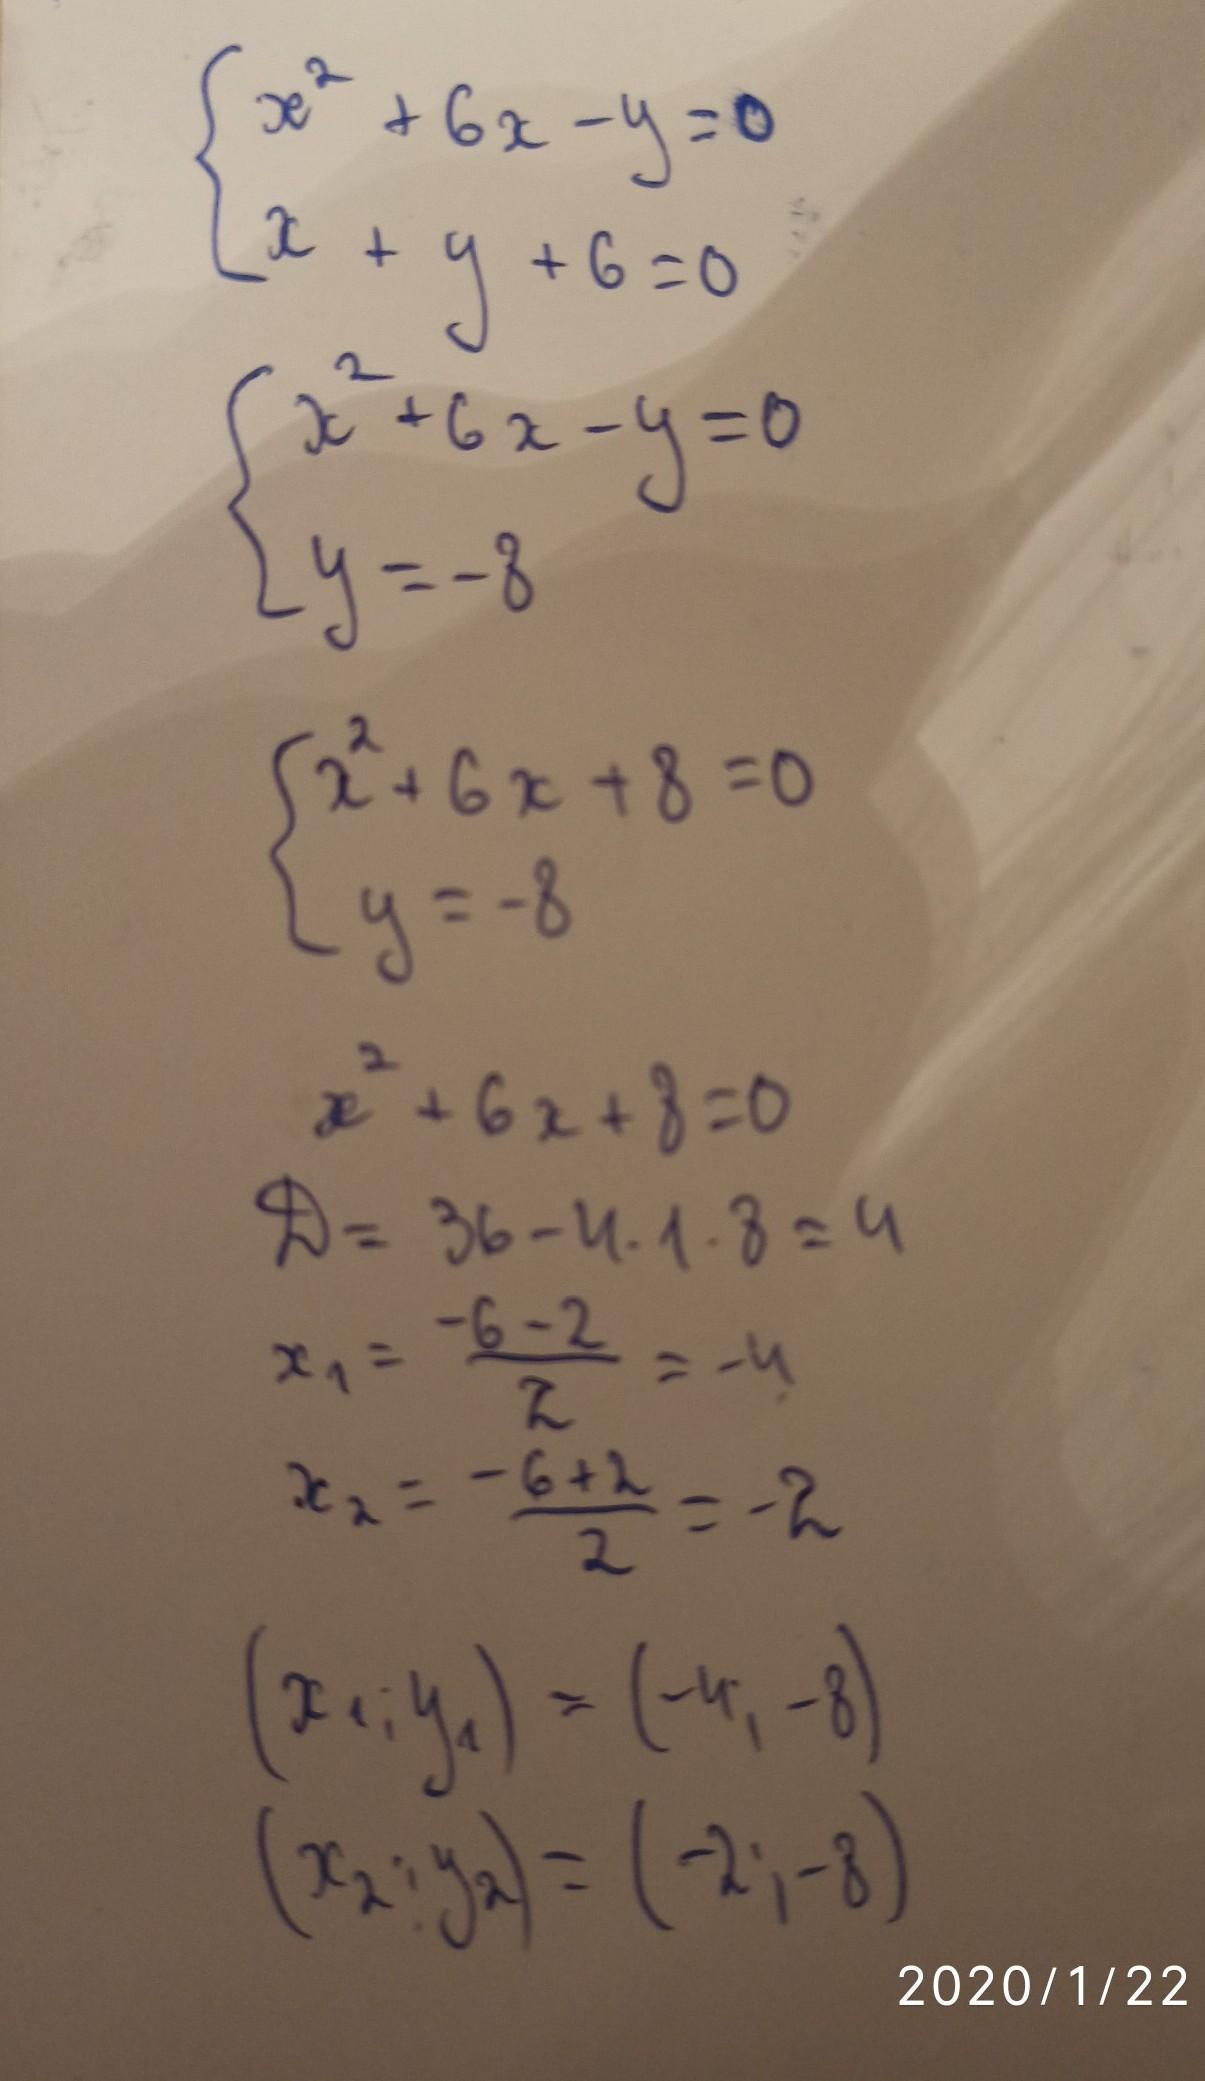 x² + 6x - y = 0
x + y + 6 = 0
x² + 6x - y = 0
y = -8
x² + 6x + 8 = 0
y = -8
x² + 6x + 8 = 0
D = 36 - 4 · 1 · 8 = 4
x₁ = (-6 - 2)/2 = -4
x₂ = (-6 + 2)/2 = -2
(x₁; y₁) = (-4; -8)
(x₂; y₂) = (-2; -8)
2020/1/22